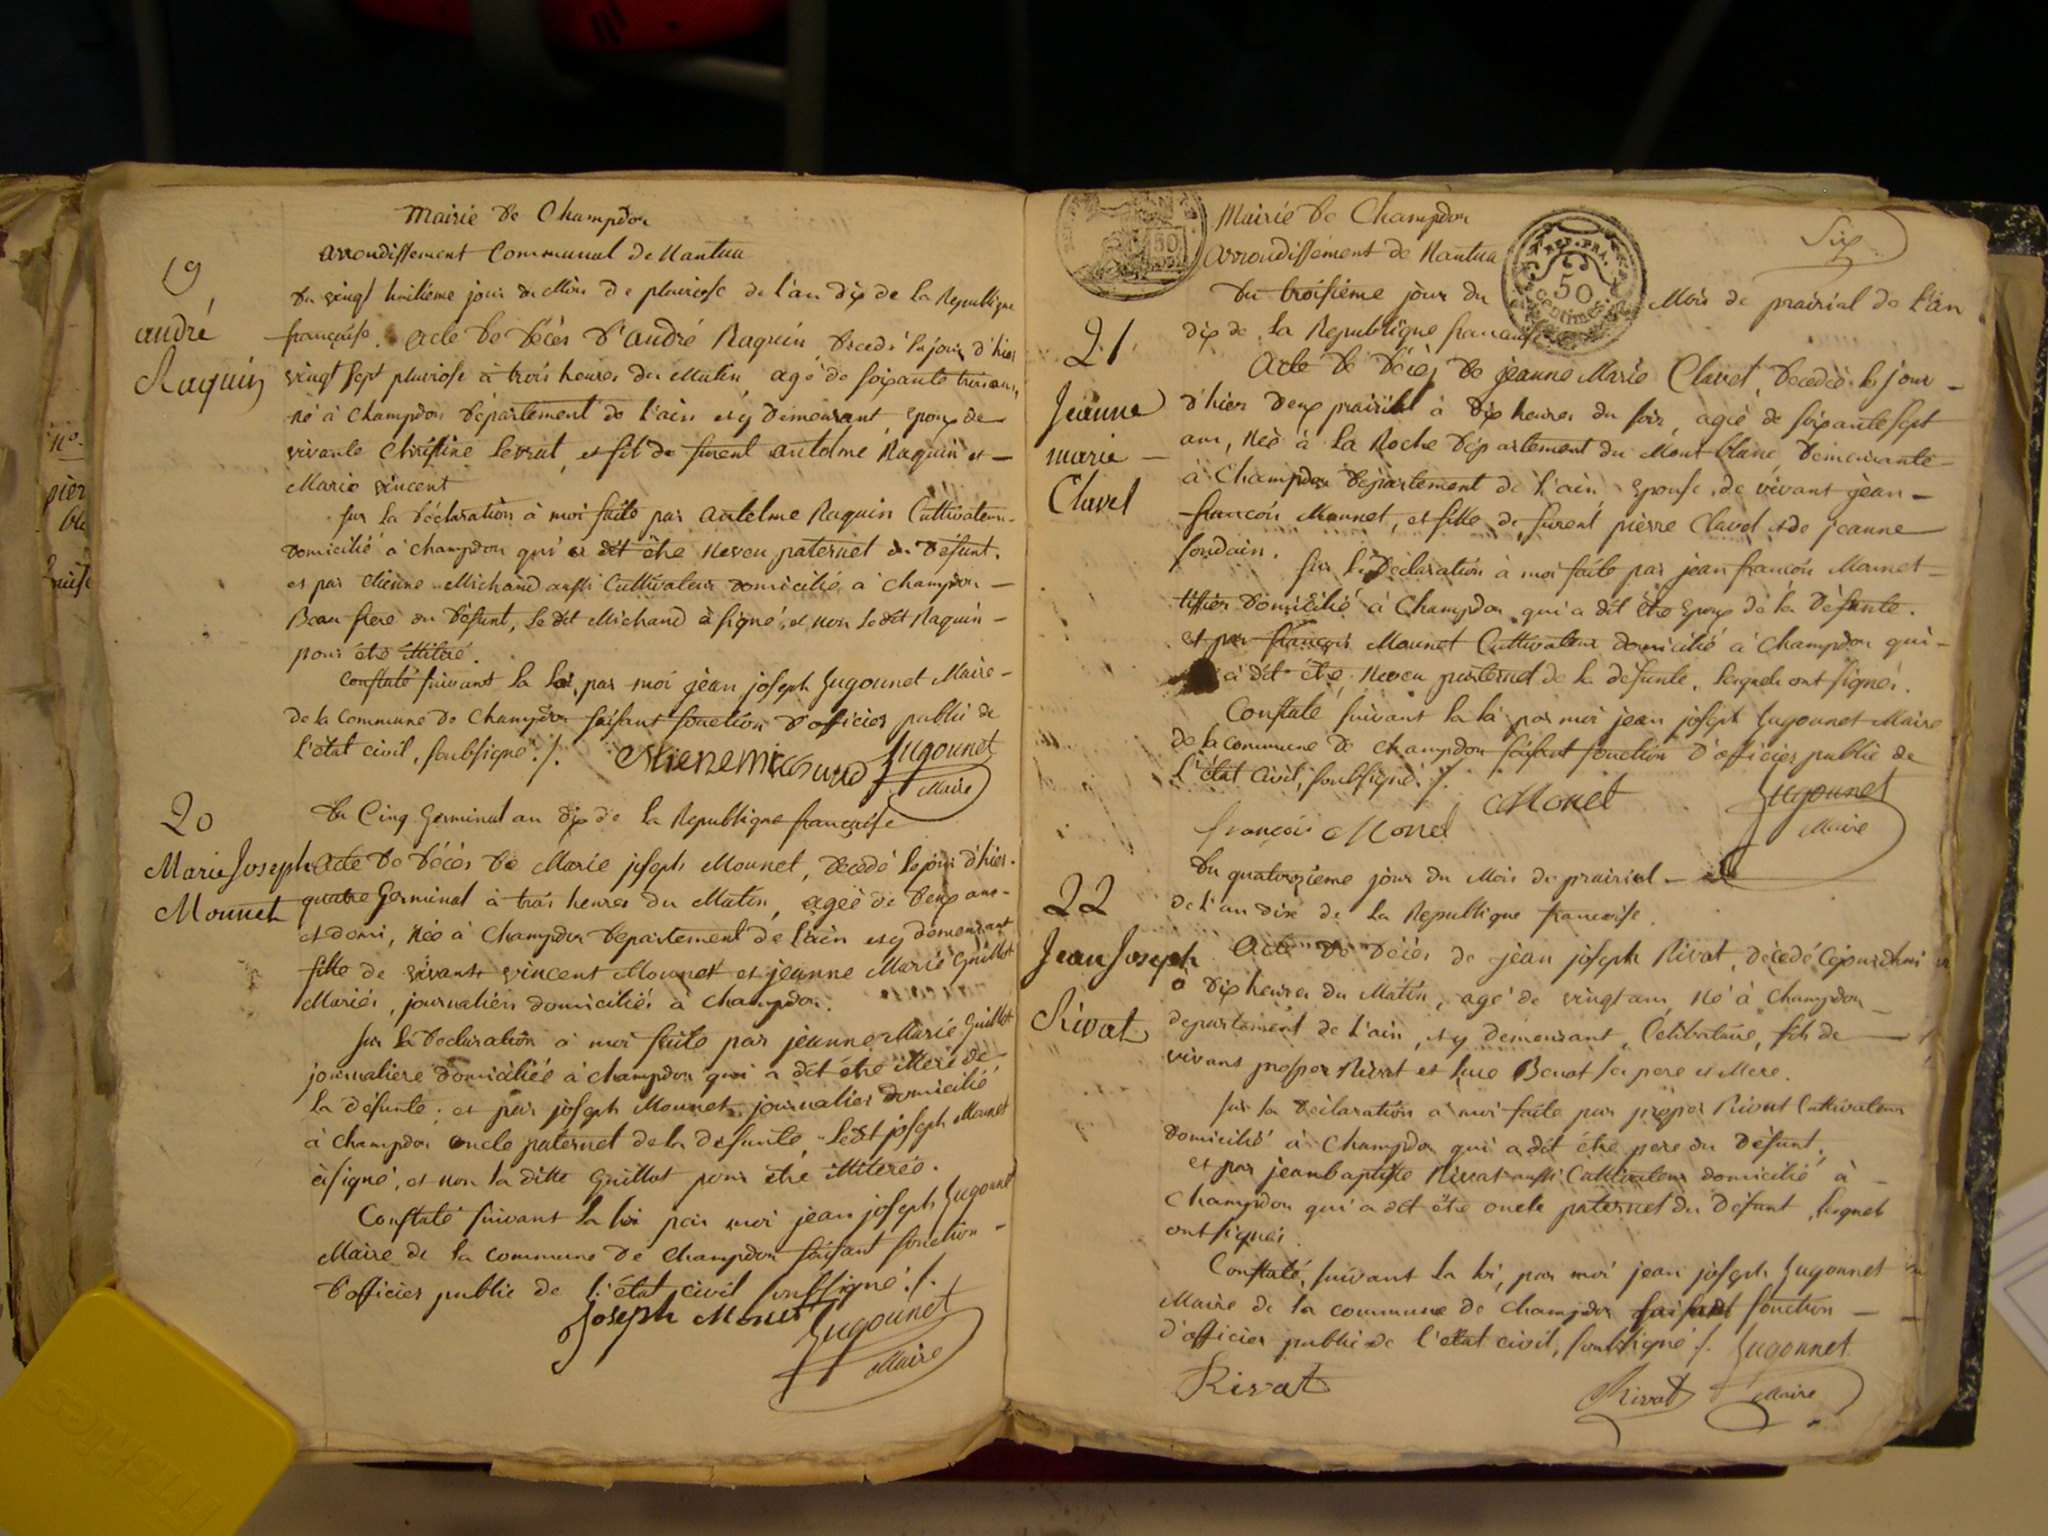 Mairie de Champdor
arrondissement Communal de Nantua
19
andré
Raquin
du vingt huitième jour du Mois de pluviose de l'an dix de la Republique
françaíse. acte de décès d'andré Raquin decedé le jour d'hier
vingt sept pluviose à trois heures du Matin, agé de soixante trois ans,
né à Champdor département de l'ain et y demeurant, epoux de
vivante Christine Levrat, et fils de furent antelme Raquin et
Marie vincent
sur la déclaration à moi faite par antelme Raquin Cultivateur
domicilié à champdor qui a dit être Neveu paternel du défunt.
et par etienne Michaud aussi Cultivateur domicilié à champdor
Beau frere du défunt, le dit Michaud à signé, et non le dit Raquin
pour être illitéré.
Constaté suivant la loi, par moi jean joseph Jugounet Maire
de la commune de Champdor faisant fonction d'officier public de
l'état civil, soussigné ./. etiene michaud Jugounet
Maire
20
Marie Joseph
Mounet
du Cinq Germinal an dix de la Republique française
acte de décès de Marie joseph Mounet, decedé le jour d'hier
quatre Germinal à trois heures du Matin, ageé de deux ans
et demi, Née à Champdor département de l'ain et y demeurant
fille de vivants vincent Mounet et jeanne Marie Guillot
Mariés, journaliers domiciliés à champdor.
sur la déclaration à moi faite par jeanne Marie Guillot
journaliere domiciliée à champdor qui a dit être Mere de
la défunte; et par joseph Mounet journalier domicilié
à champdor oncle paternel de la défunte, le dit joseph Mounet
à signé, et non la ditte Guillot pour être illiterée.
Constaté suivant la loi par moi jean joseph Jugounet
Maire de la commune de champdor faisant fonction
d'officier public de l'état civil soussigné ./.
Joseph Monet Jugounet
Maire
50
Mairie de Champdor
arrondissement de Nantua
REP. FRA.
50
Centimes
Six
21
Jeanne
marie
Clavel
du troisième jour du Mois de prairial de l'an
dix de la Republique française
Acte de décès de jeanne Marie Clavel, decedée le jour
d'hier deux prairial à dix heures du soir, agée de soixante sept
ans, Née à la Roche département du Mont blanc demeurante
à Champdor département de l'ain, Epouse de vivant jean
françois Mounet, et fille de furent pierre Clavel et de jeanne
sondain. sur la déclaration à moi faite par jean françois Mounet
tissier domicilié à Champdor qui a dit être epoux de la défunte.
et par françois Mounet Cultivateur domicilié à Champdor qui
à dit être Neveu paternel de la défunte, lesquels ont signés.
Constaté suivant la loi par moi jean joseph Jugounet Maire
de la commune de champdor faisant fonction d'officier public de
l'état civil, soussigné ./. Monet Jugounet
françois Monel Maire
22
Jean Joseph
Rivat
du quatorzieme jour du Mois de prairial
de l'an dix de la Republique francaise.
Acte de décès de jean joseph Rivat, décedé cejourdhui
à dix heures du Matin, agé de vingt ans, Né à Champdor
departement de l'ain, et y demeurant, Celibataire, fils de
vivans prosper Rivat et luce Benot ses pere et Mere.
sur la déclaration à moi faite par prosper Rivat Cultivateur
domicilié à Champdor qui a dit être pere du défunt,
et par jeanbaptiste Rivat aussi Cultivateur domicilié à
Champdor qui a dit être oncle paternel du défunt, lesquels
ont signés.
Constaté, suivant la loi, par moi jean joseph Jugounet
Maire de la commune de champdor faisant fonction
d'officier public de l'état civil, soussigné ./. Jugounet
Rivat Rivat Maire